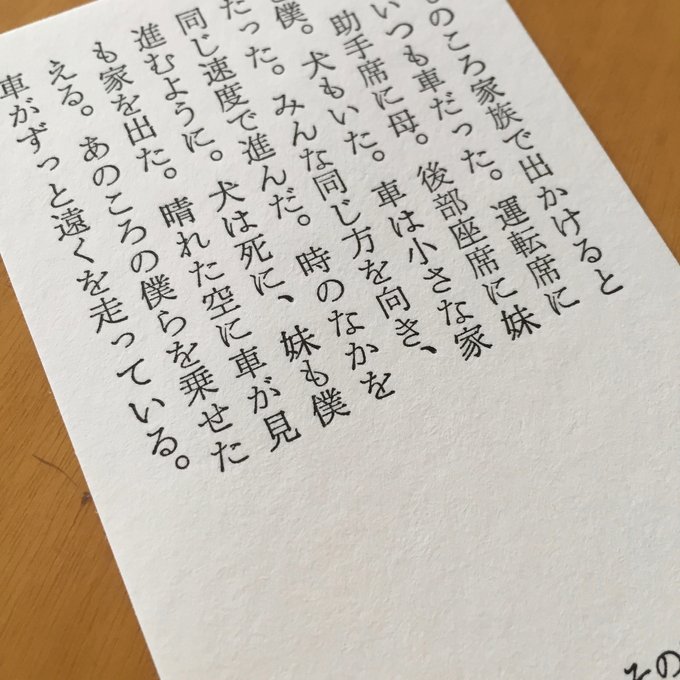 のころ家族で出かけると
いつも車だった。運転席に
助手席に母。後部座席に妹
と僕。犬もいた。車は小さな家
だった。みんな同じ方を向き、
同じ速度で進んだ。時のなかを
進むように。犬は死に、妹も僕
も家を出た。晴れた空に車が見
える。あのころの僕らを乗せた
車がずっと遠くを走っている。
その